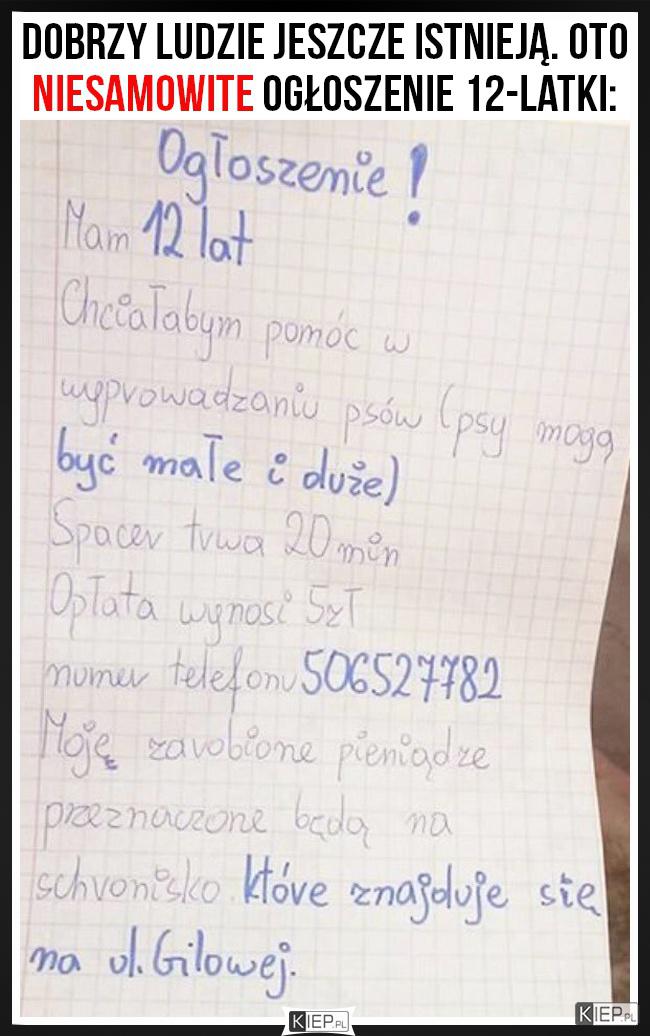 DOBRZY LUDZIE JESZCZE ISTNIEJĄ. OTO
NIESAMOWITE OGŁOSZENIE 12-LATKI:
Ogłoszenie!
Mam 12 lat
Chciałabym pomóc w
wyprowadzaniu psów (psy mogą
być małe i duże)
Spacer trwa 20 min
Opłata wynosi 5zł
numer telefonu 506527782
Moję zarobione pieniądze
przeznaczone będą na
schronisko które znajduje się
na ul. Gilowej.
KIEP.PL
KIEP.PL